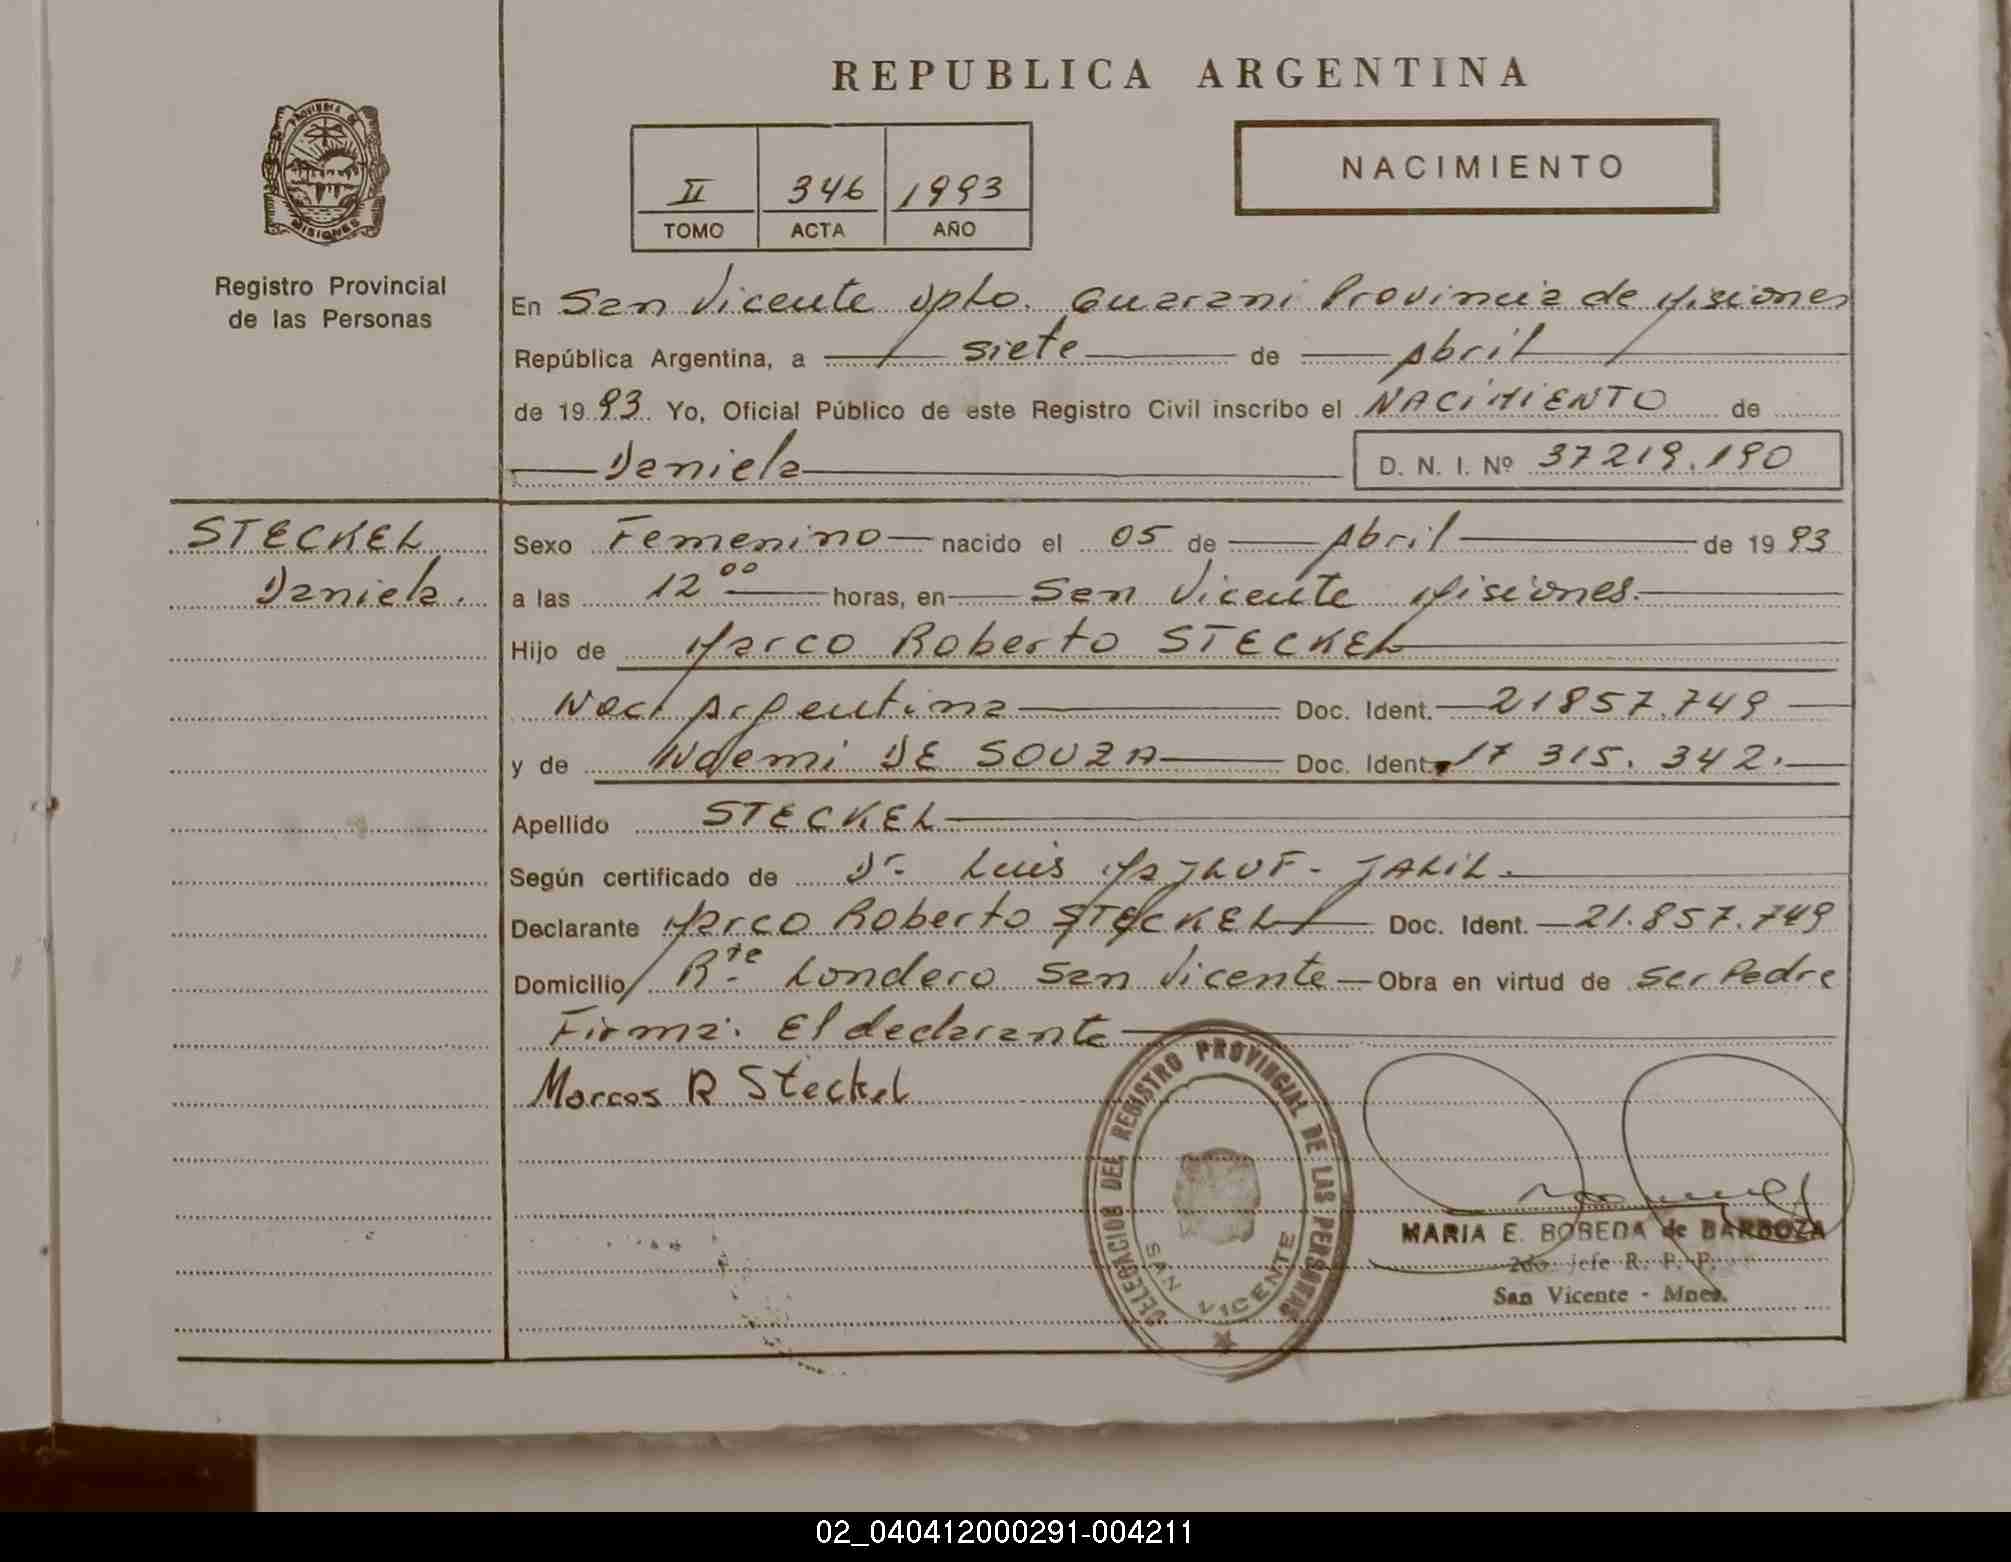 REPUBLICA ARGENTINA
PROVINCIA DE
MISIONES
Registro Provincial
de las Personas
II 346 1993
TOMO ACTA AÑO
NACIMIENTO
En San Vicente Dpto. Guarani Provincia de Misiones
República Argentina, a siete de Abril
de 1993. Yo, Oficial Público de este Registro Civil inscribo el NACIMIENTO de
Daniela D. N. I. Nº 37219.190
STECKEL
Daniela.
Sexo Femenino nacido el 05 de Abril de 1993
a las 12 00 horas, en San Vicente Misiones.
Hijo de Marco Roberto STECKEL
Nac. Argentina Doc. Ident. 21857.749
y de Noemi DE SOUZA Doc. Ident. 17 315. 342.
Apellido STECKEL
Según certificado de Dr. Luis MAJLUF - JALIL.
Declarante Marco Roberto STECKEL Doc. Ident. 21.857.749
Domicilio Rte Londero San Vicente Obra en virtud de ser Padre
Firma: El declarante
Marcos R Steckel
DELEGACION DEL REGISTRO PROVINCIAL DE LAS PERSONAS
SAN VICENTE
MARIA E. BOBEDA de BARBOZA
2do. jefe R. P. P.
San Vicente - Mnes.
02_040412000291-004211